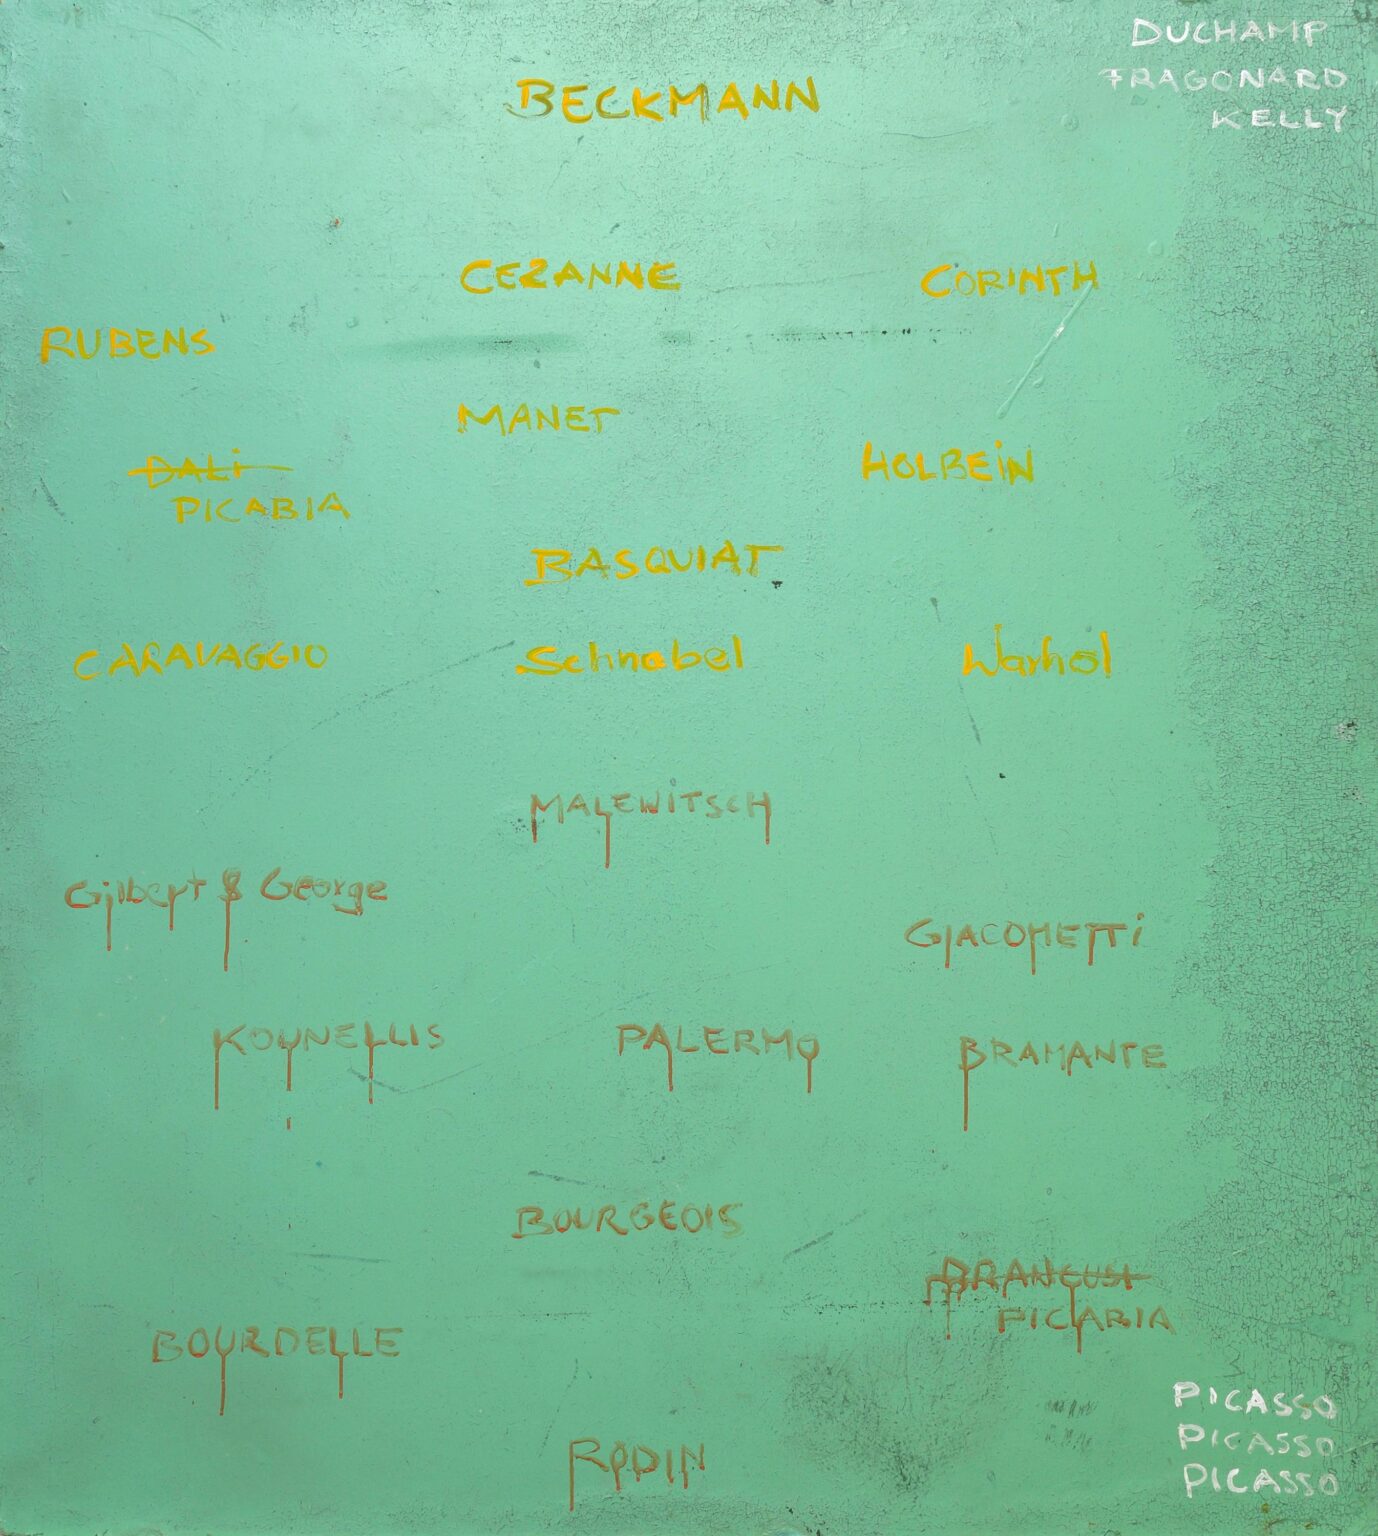 DUCHAMP
FRAGONARD
KELLY
BECKMANN
CEZANNE
CORINTH
RUBENS
MANET
HOLBEiN
DALi
PICABIA
BASQUIAT
CARAVAGGIO
Schnabel
Warhol
MALEWiTSCH
Gilbert & George
GIACOMETTi
KOUNELLIS
PALERMO
BRAMANTE
BOURGEOIS
BRANCUSI
PICABIA
BOURDELLE
PICASSO
PICASSO
PICASSO
RODIN